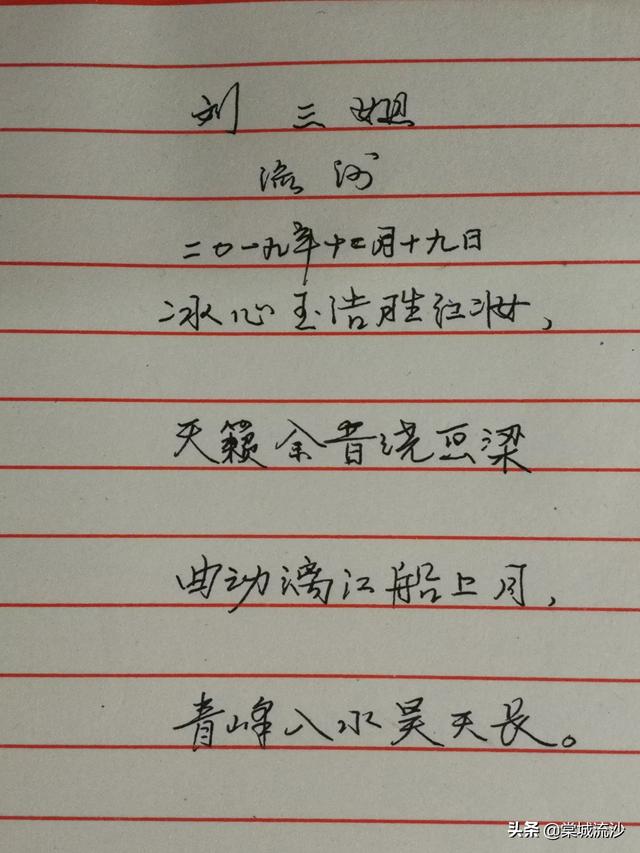 刘三姐
流沙
二0一九年十二月十九日
冰心玉洁胜红妆，
天籁余音绕画梁
曲动漓江船上月，
青峰入水昊天长。
头条@棠城流沙